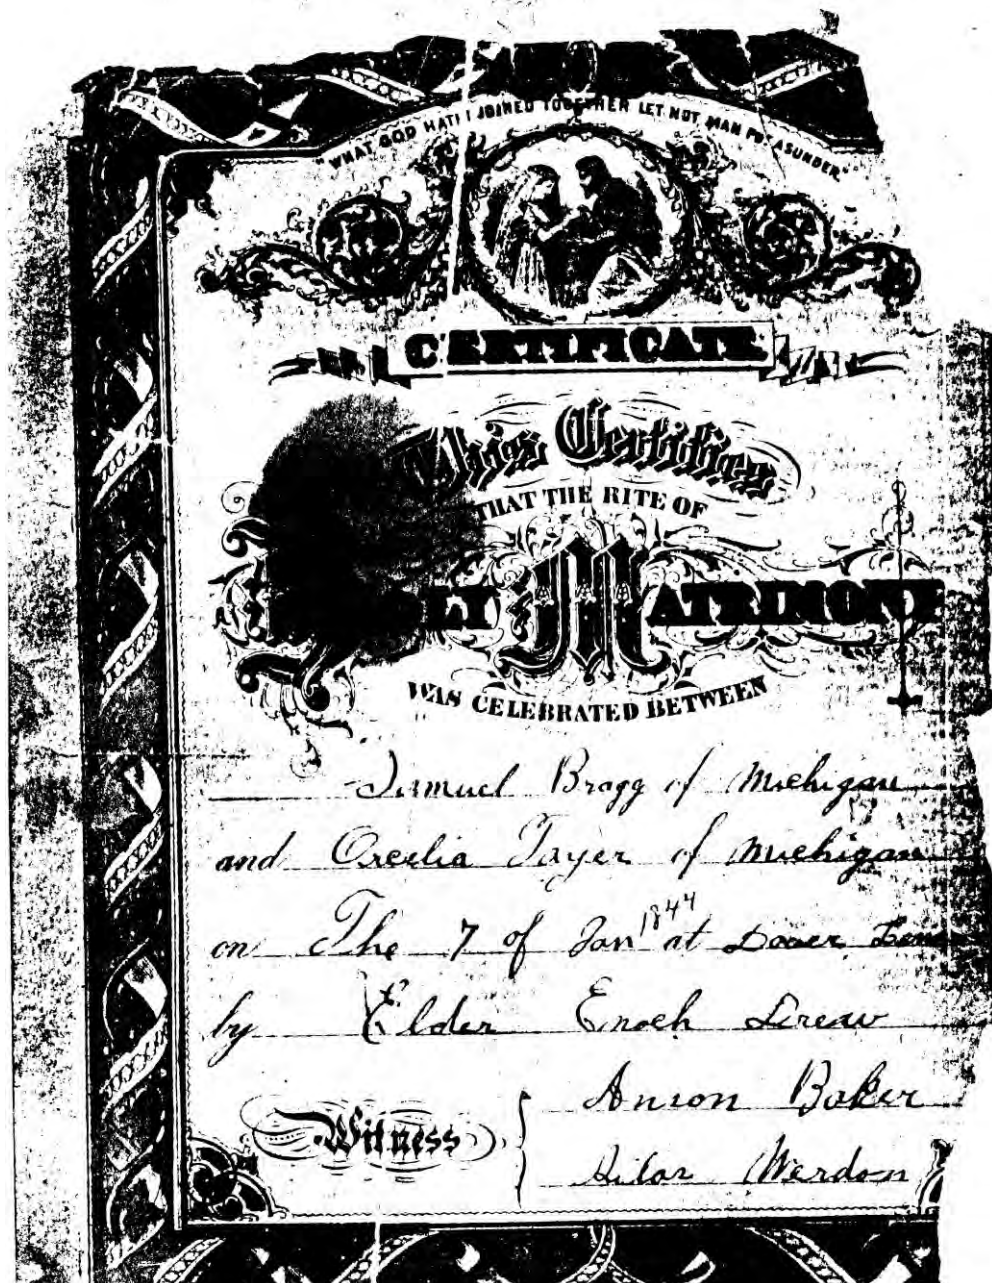 "WHAT GOD HATH JOINED TOGETHER LET NOT MAN PUT ASUNDER."
CERTIFICATE
This Certifies
THAT THE RITE OF
HOLY MATRIMONY
WAS CELEBRATED BETWEEN
Samuel Bragg of Michigan
and Orcelia Tayer of Michigan
on The 7 of Jan 1844 at Dover
by Elder Enoch Drew
Witness
Anson Baker
Silas Werdon